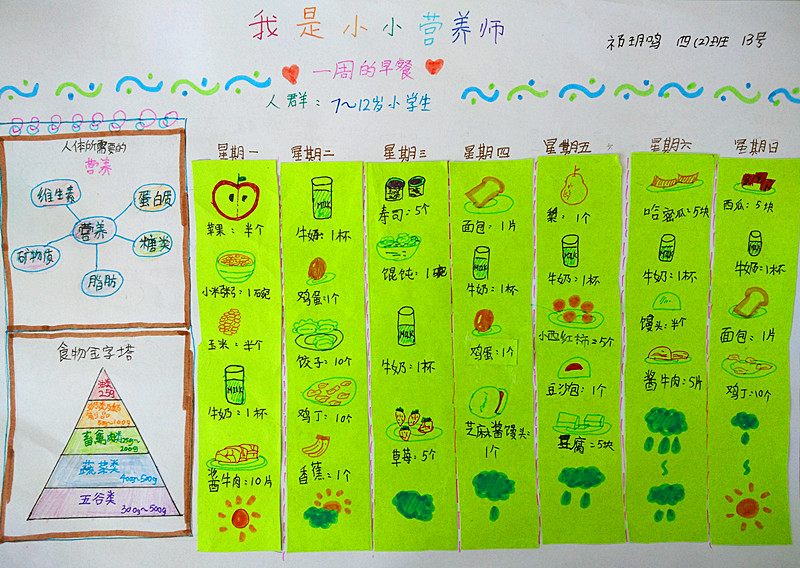 我是小小营养师
祁玥鸣 四(2)班 13号
一周的早餐
人群：7~12岁小学生
人体所需要的
营养
维生素
蛋白质
营养
矿物质
糖类
脂肪
食物金字塔
油类
25g
奶类及豆
制品
50g~100g
畜禽肉类125g~
200g
蔬菜类
400g~500g
五谷类
300g~500g
星期一
苹果：半个
小米粥：1碗
玉米：半个
MILK
牛奶：1杯
酱牛肉：10片
星期二
MILK
牛奶：1杯
鸡蛋：1个
饺子：10个
鸡丁：10个
香蕉：1个
星期三
寿司：5个
馄饨：1碗
MILK
牛奶：1杯
草莓：5个
星期四
面包：1片
MILK
牛奶：1杯
鸡蛋：1个
芝麻酱馒头：
1个
星期五
梨：1个
MILK
牛奶：1杯
小西红柿：5个
豆沙包：1个
豆腐：5块
星期六
哈蜜瓜：5块
MILK
牛奶：1杯
馒头：半个
酱牛肉：5片
星期日
西瓜：5块
MILK
牛奶：1杯
面包：1片
鸡丁：10个